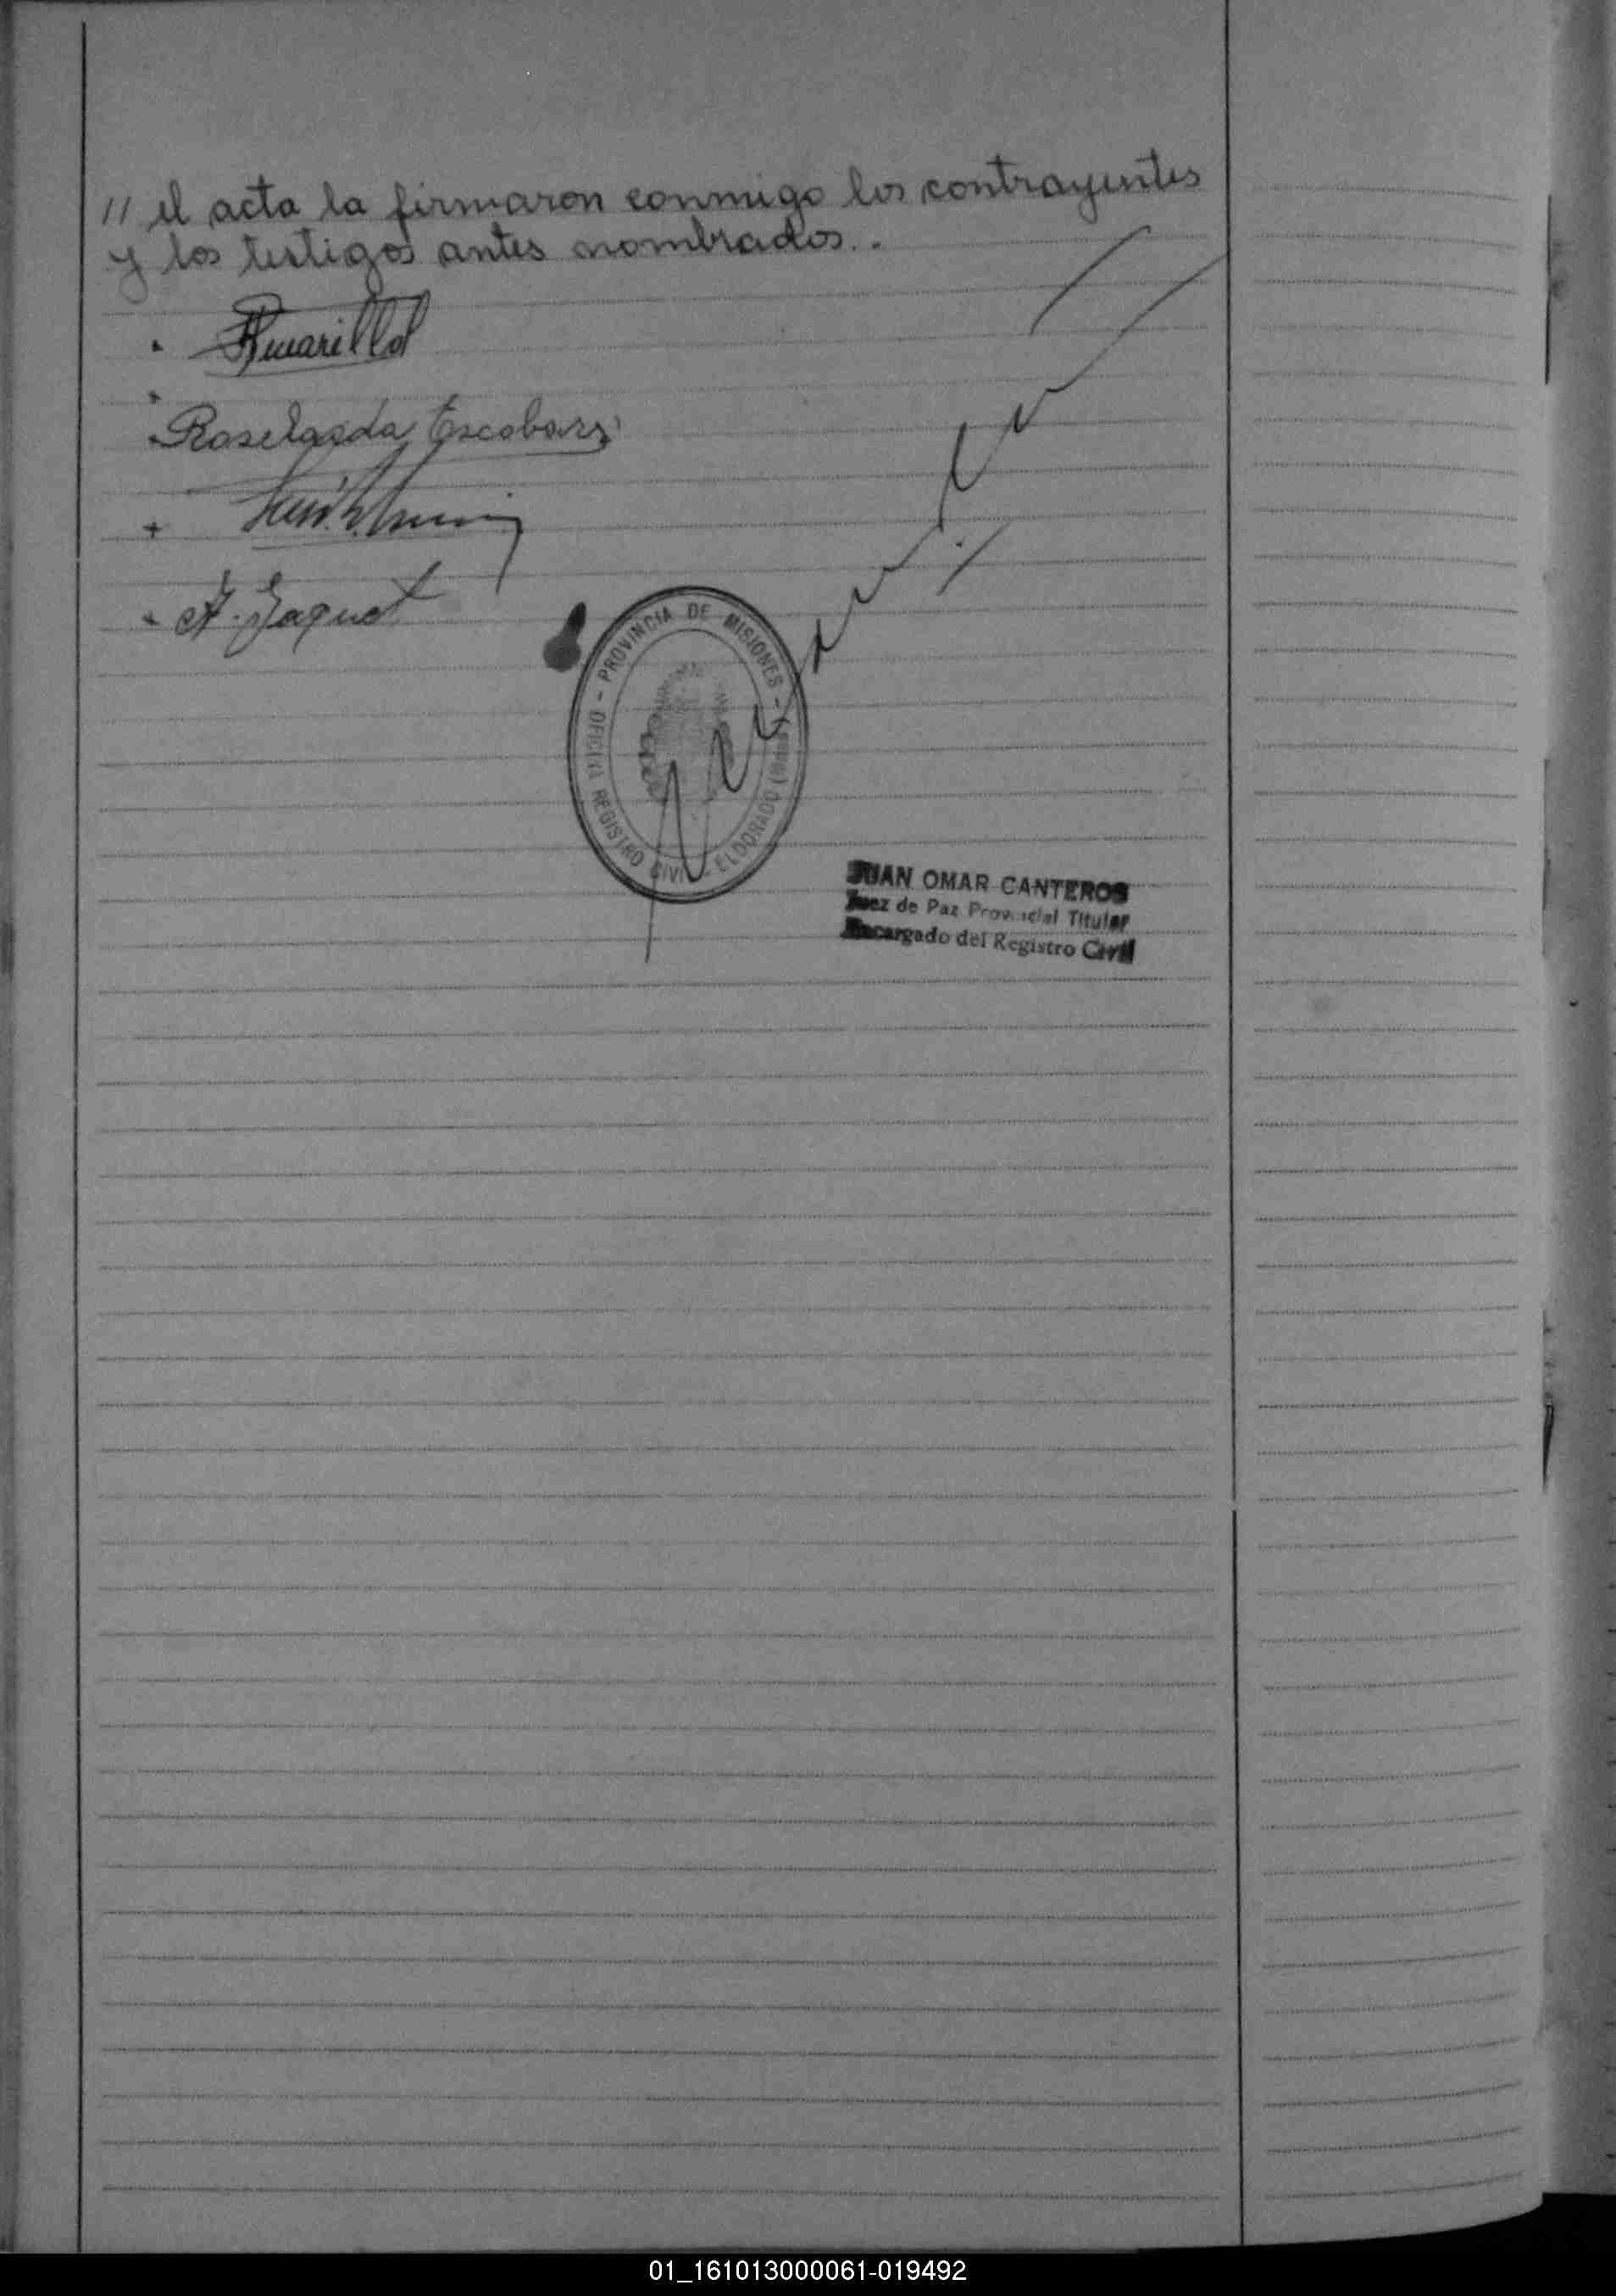 // el acta la firmaron conmigo los contrayentes
y los testigos antes nombrados..
Amarilla
Escobar
A. Jaquet
- PROVINCIA DE MISIONES -
OFICINA REGISTRO CIVIL - ELDORADO
JUAN OMAR CANTEROS
Juez de Paz Provincial Titular
Encargado del Registro Civil
01_161013000061-019492